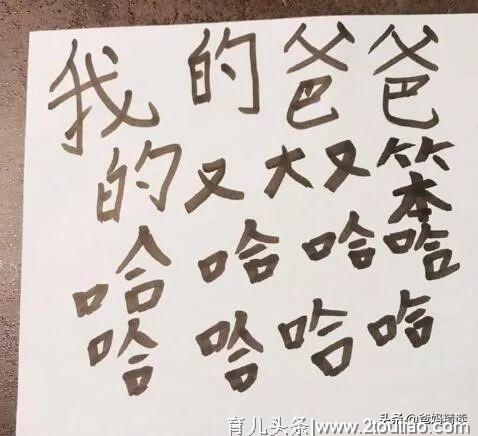 我的爸爸
的又大又笨
哈哈哈哈
哈哈哈哈
头条@爸妈精读
育儿头条|www.2toutiao.com